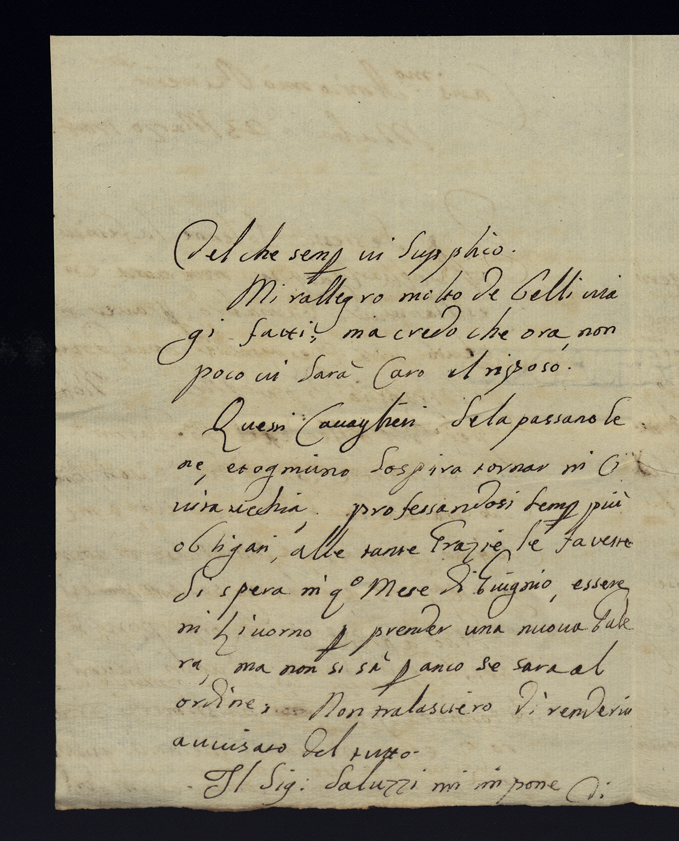 Del che semp vi supplico.
Mi rallegro molto de belli via
gi fatti, ma credo che ora, non
poco vi sarà Caro il riposo.
Questi Cavaglieri se la passano be
ne, et ogniuno sospira tornar in Ci
vita vecchia, professandosi semp più
obligati, alle tante Grazie le faveste
Si spera in q.o Mese di Giugnio, essere
in Livorno p prender una nuova Gale
ra, ma non si sà p anco se sara al
ordine; Non tralasciero di rendervi
avvisato del tutto.
Il Sig: Saluzzi mi impone di